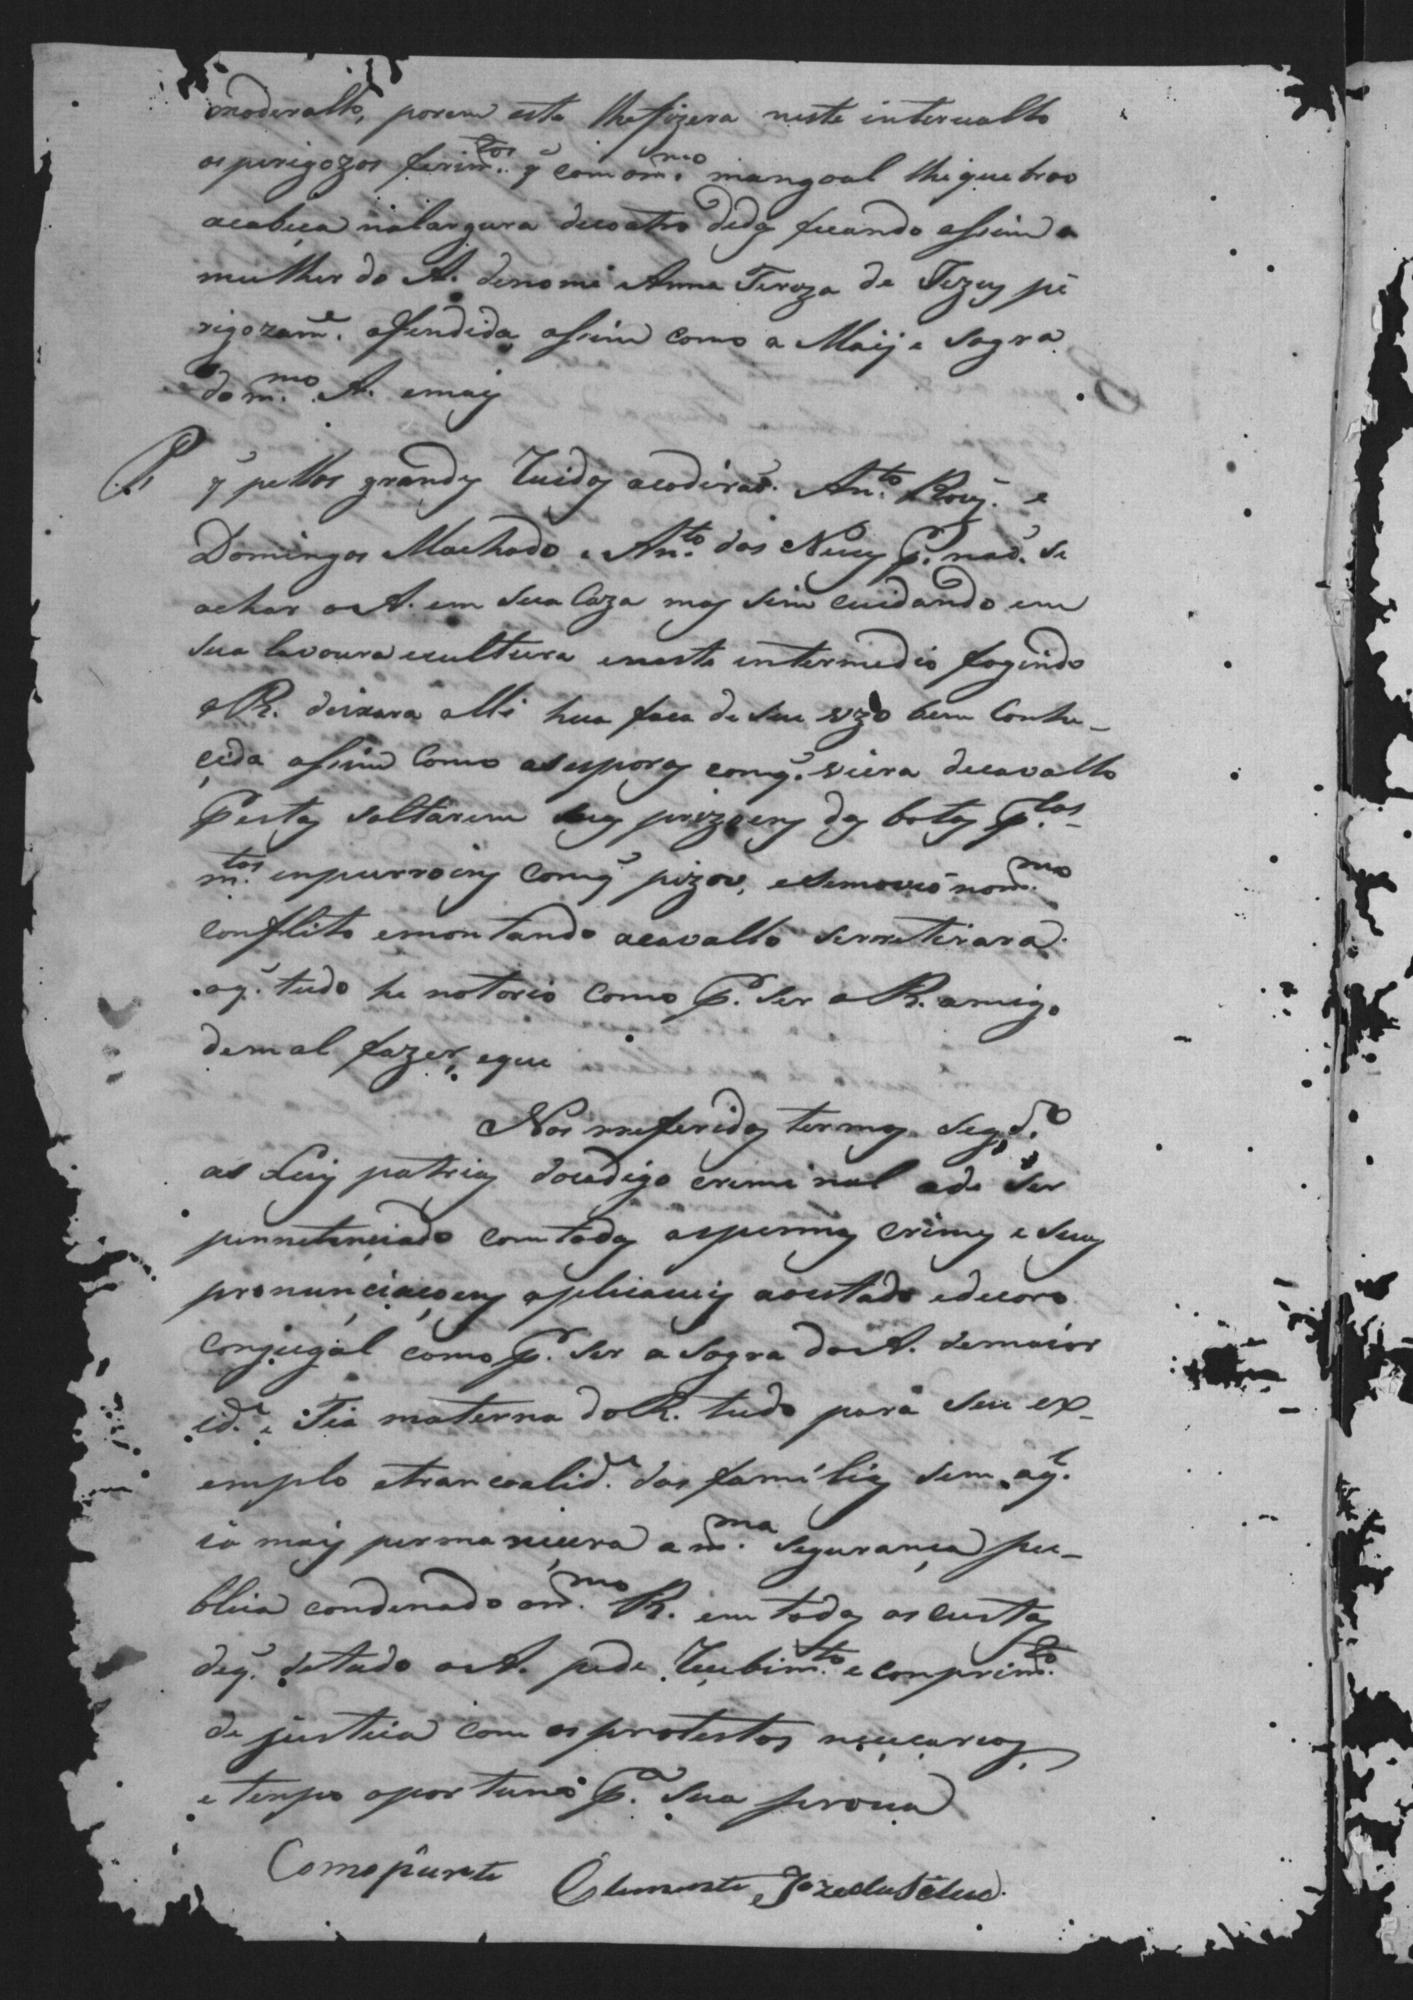 moderallo, porem este lhe fizera neste intervallo
os perigozos ferim.tos q̃ com o m.mo mangoal lhe quebrao
acabeça nalargura decoatro dedos ficando assim a
mulher do A. denome Anna Tereza de Jezus pe
rigozam.e offendida assim como a Maij e Sogra
do m.mo A. emais
P. q̃ pellos grandes Ruidos acodiraõ. An.to Roiz. e
Domingos Machado e An.to das Neves p.r naõ. se
achar o A. em sua Caza mas sim cuidando em
sua lavoura ecultura eneste intermedio fogindo
o R. deixara alli hua faca de seu uzo bem Conhe_
cida assim Como as esporas comq̃. viera decavallo
P estas soltarem suas prizoens das botas p.los
m.tos enpurroens comq̃ pizou, esemoveo nom.mo
conflito emontando acavallo serretirara.
oq̃. tudo he notorio como p.r ser o R. amigo
demal fazer, eque
Nos rreferidos termos seg.do
as Leis patrias docudigo criminal ade ser
pennetenciado comtodas aspennas crimes e suas
pronunciaçoens aplicaveis aoestado edecoro
conjugal como p.r ser a sogra do A. demaior
id.e e Tia materna do R. tudo para seu ex_
emplo etrancoalid.e das familias sem oq.l
ja mais permanecera am.ma segurança pu_
blica condenado om.mo R. em todas as custas
deq̃. setudo o A. pede Recebim.to e conprim.to
de justiça com os protestos necearios
e tenpo oportuno p.a sua prova
Como parte Clemente Joze da Silva.